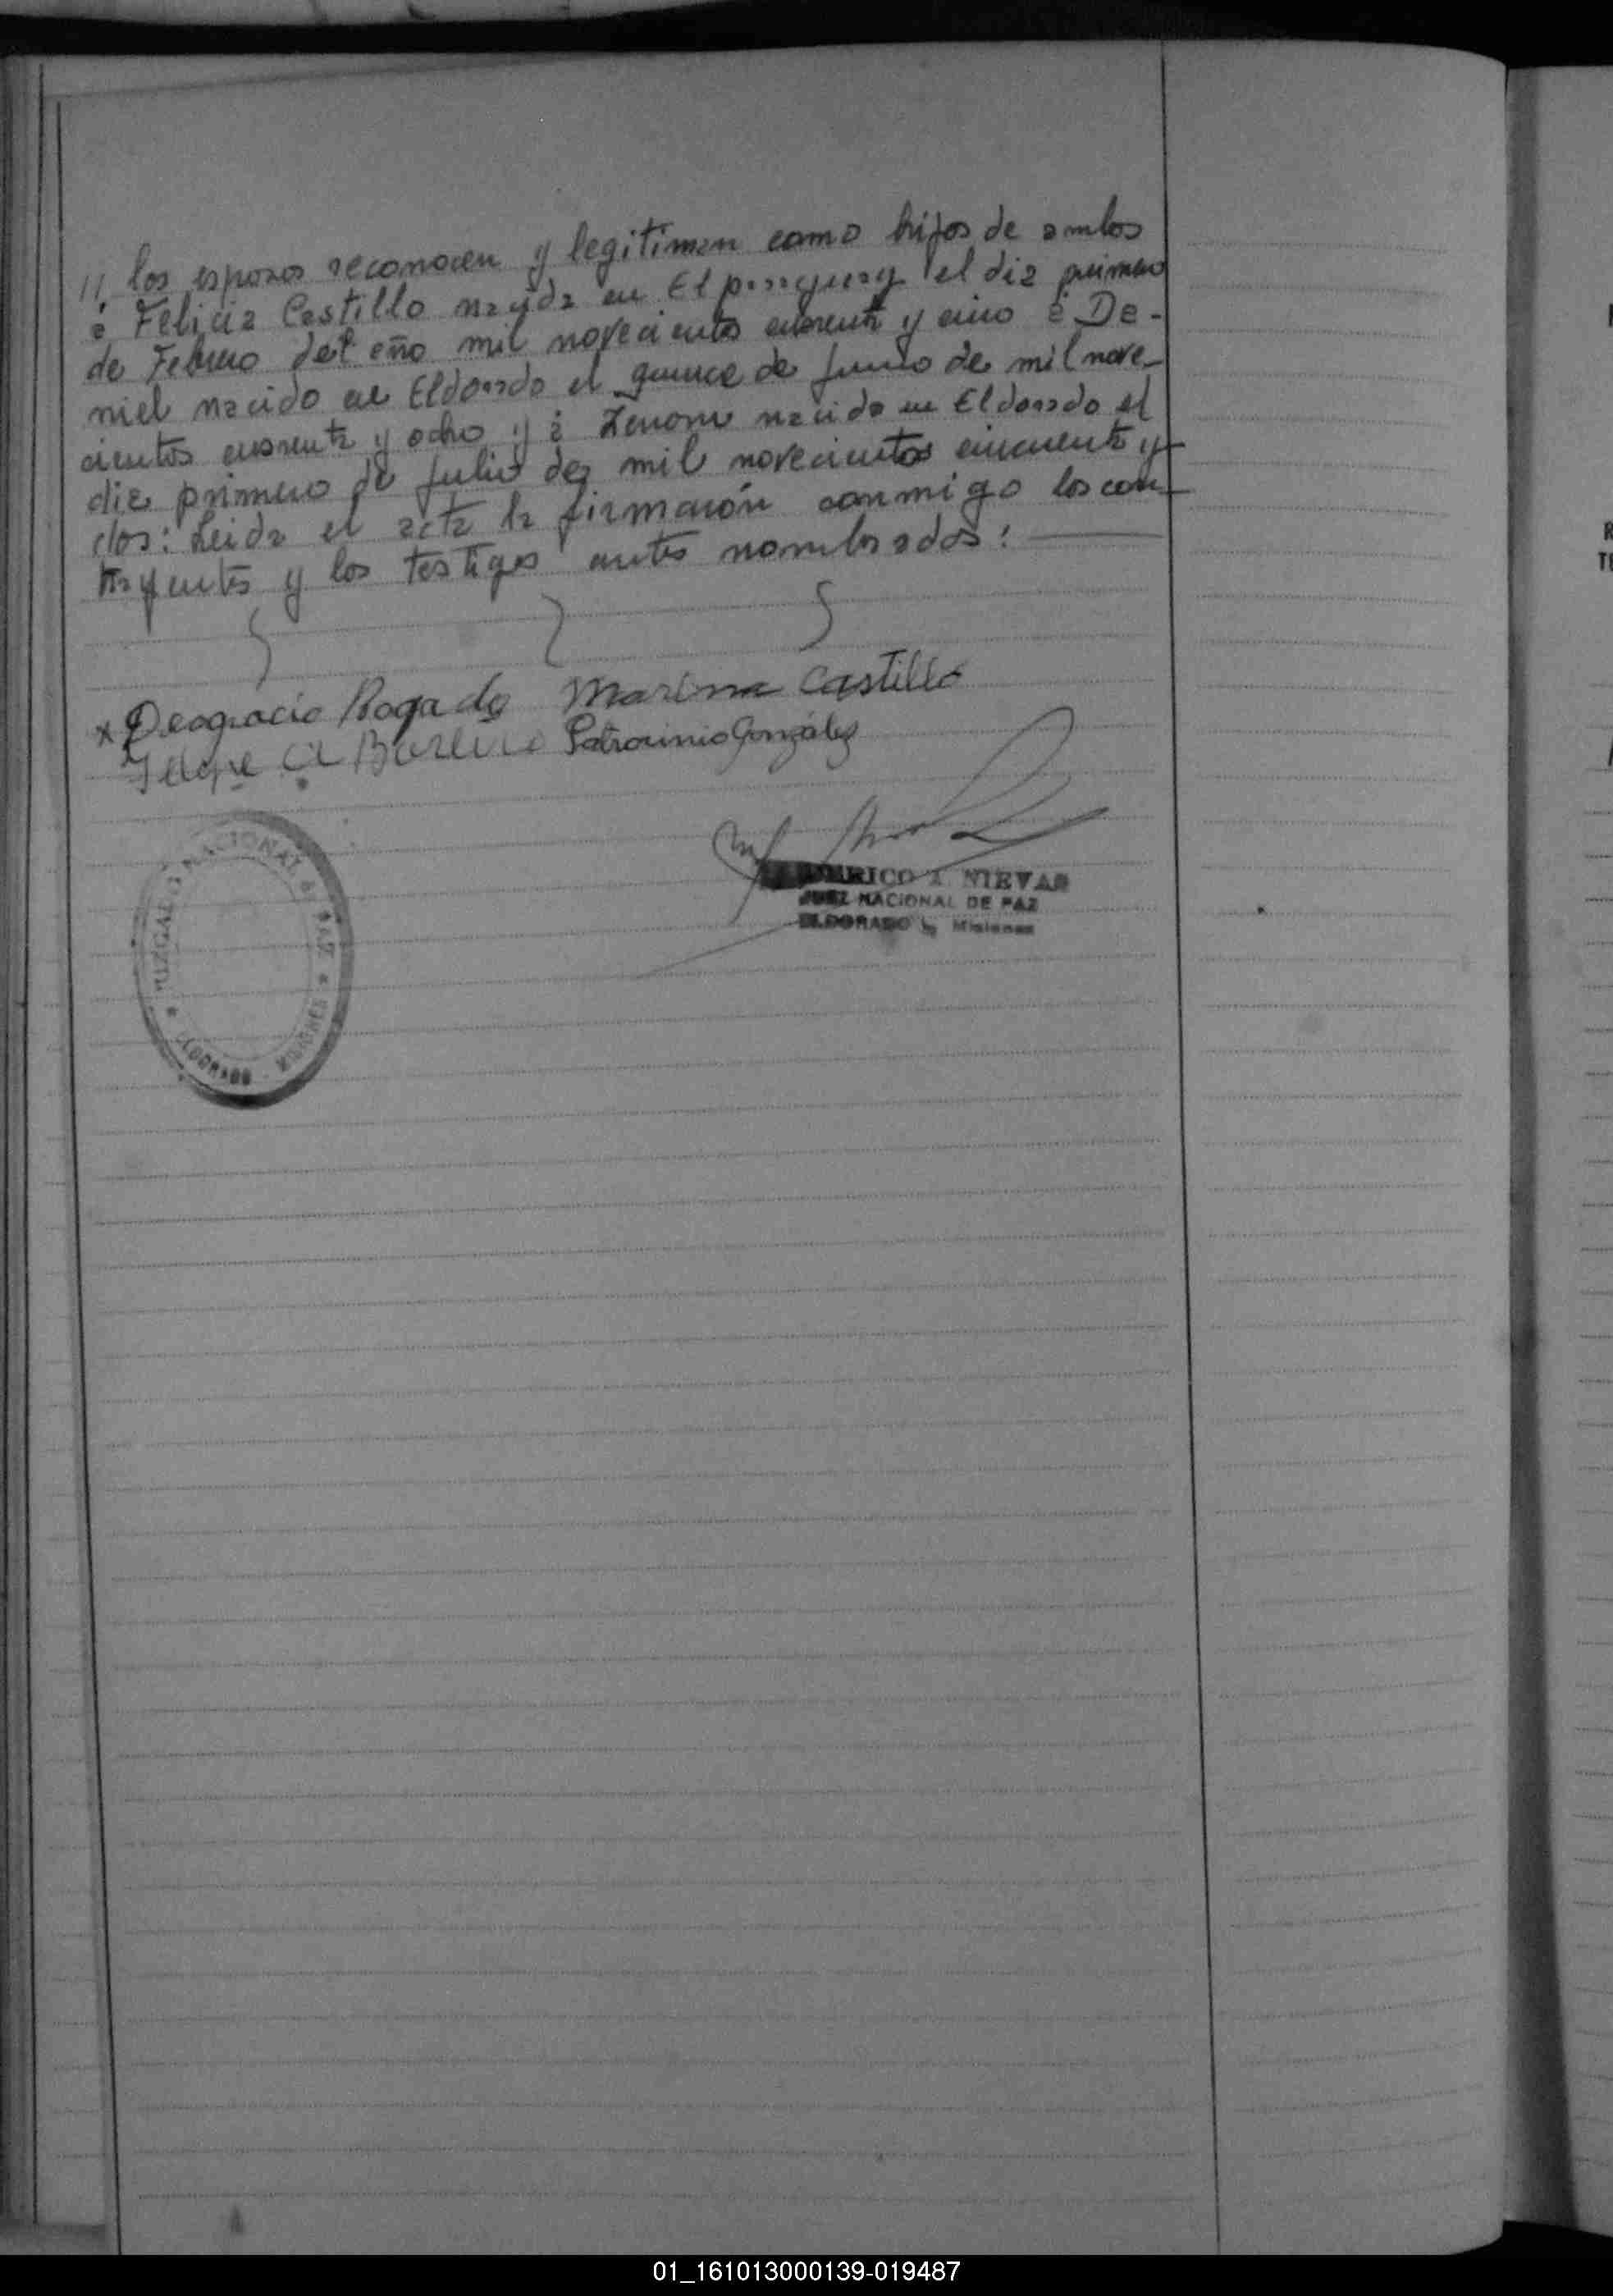 // los esposos reconocen y legitiman como hijos de ambos
a Felicia Castillo nacida en El paraguay el dia primero
de Febrero del año mil novecientos cuarenta y cinco a De-
niel nacido en Eldorado el quince de Junio de mil nove-
cientos cuarenta y ocho y a Zenon nacido en Eldorado el
dia primero de Julio de mil novecientos cincuenta y
dos: Leida el acta la firmarón conmigo los con-
trayentes y los testigos antes nombrados:
x Deogracio Rogado Marina Castillo
Felipe Patrocinio González
JUZGADO NACIONAL DE PAZ
* ELDORADO - MISIONES *
AMERICO A. NIEVAS
JUEZ NACIONAL DE PAZ
ELDORADO Misiones
R
TE
01_161013000139-019487